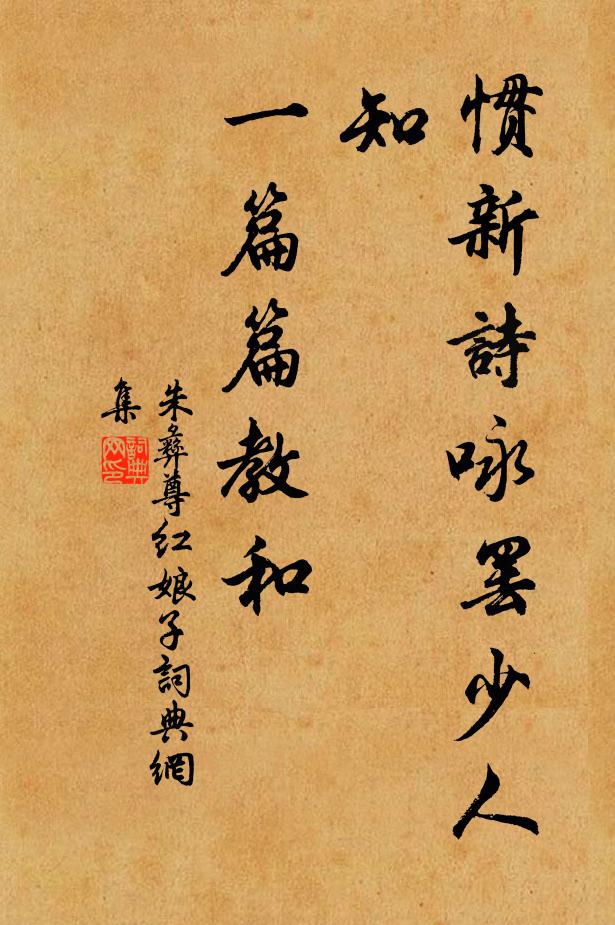 慣新詩咏罢少人
知
一篇篇教和
朱彝尊红娘子詞典網
集
詞典
网印